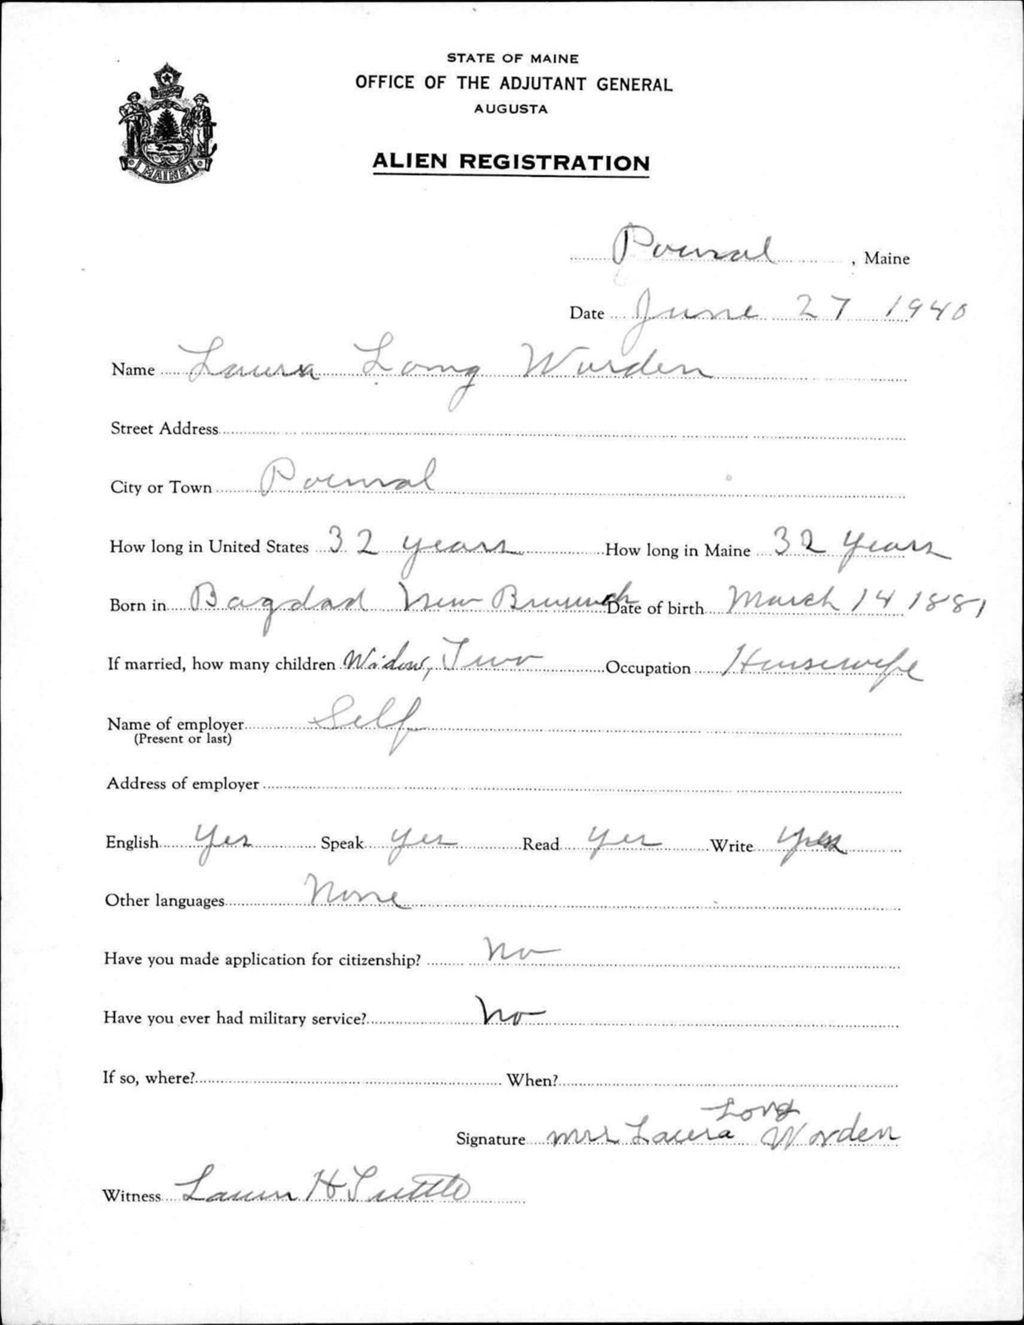 STATE OF MAINE
OFFICE OF THE ADJUTANT GENERAL
AUGUSTA
ALIEN REGISTRATION
MAINE
Pownal, Maine
Date June 27 1940
Name Laura Long Worden
Street Address
City or Town Pownal
How long in United States 32 years How long in Maine 32 years
Born in Bagdad New Brunswick Date of birth March 14 1881
If married, how many children Widow, Two Occupation Housewife
Name of employer Self
(Present or last)
Address of employer
English Yes Speak Yes Read Yes Write Yes
Other languages None
Have you made application for citizenship? No
Have you ever had military service? No
If so, where? When?
Signature Mrs Laura Long Worden
Witness H Tuttle